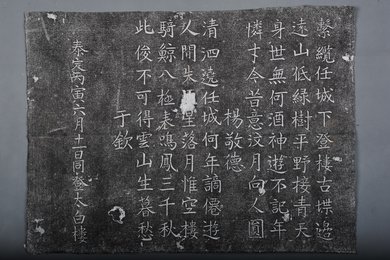 繫纜任城下登樓古堞邊
遠山低綠樹平野接青天
身世無何酒神遊不記年
憐才今昔意汶月向人圓
楊敬德
清泗遶任城何年謫僊遊
人間失星落月惟空樓
騎鯨八極表鳴鳳三千秋
此俊不可得雲山生暮愁
于欽
泰定丙寅六月十一日同登太白樓